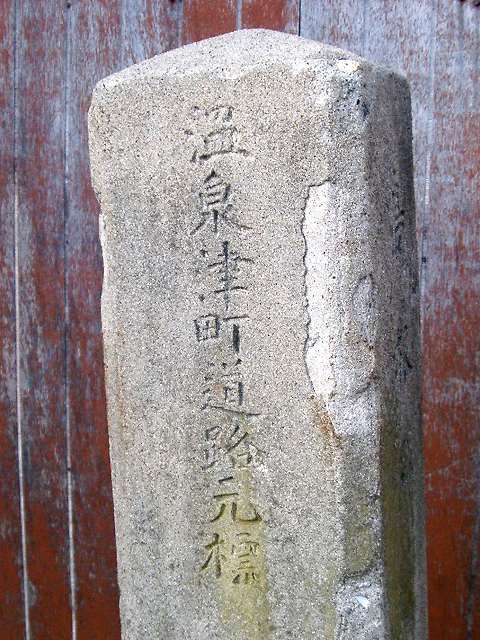 温泉津町道路元標